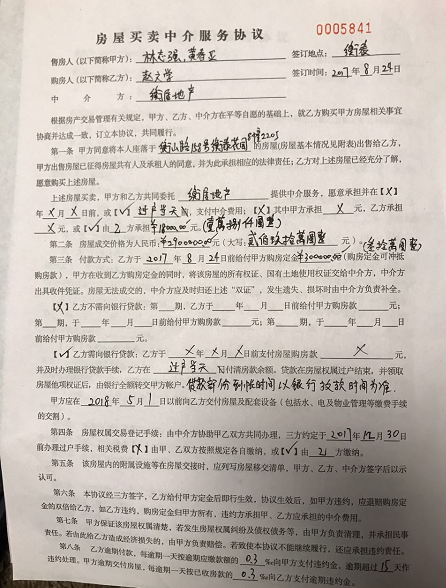 0005841
房屋买卖中介服务协议
售房人(以下简称甲方): 林志强, 黄春 签订地点:
购房人(以下简称乙方): 赵文学 签订时间: 2017年8月24日
中 介 方: 房地产
根据房产交易管理有关规定,甲方、乙方、中介方在平等自愿的基础上,就乙方购买甲方房屋相关事宜
协商并达成一致,订立本协议,共同履行。
第一条 甲方同意将本人座落于 衡山路 号 花园 2205 的房屋(房屋基本情况见附表)出售给乙方,
甲方出售房屋已征得房屋共有人及承租人的同意,并为此承担相应的法律责任;乙方对上述房屋已经充分了解,
愿意购买上述房屋。
上述房屋买卖,甲方和乙方共同委托 房地产 提供中介服务,愿意承担并在【X】
年X月X日前,或【√】过户当天 内,支付中介费用;【X】其中甲方承担 X 元,乙方承担
X 元,或【√】由 乙 方承担¥18000.00元。(壹萬捌仟圆整)
第二条 房屋成交价格为人民币:¥2900000.00元(大写: 贰佰玖拾萬圆整 元)。
(叁拾萬圆整)
第三条 付款方式:乙方于 2017 年 8 月 24 日前给付甲方购房定金¥300000.00元(购房定金可冲抵
购房款),甲方在收到乙方购房定金的同时,将该房屋的所有权证、国有土地使用权证交给中介方,中介方
出具收件凭证。房屋无法成交的,中介方应及时归还上述“双证”,发生遗失、损坏时由中介方负责补全。
【X】乙方不需向银行贷款:第一期,乙方于 年 月 日前给付甲方购房款 元;
第 期,于 年 月 日前给付甲方购房款 元;第 期,于 年 月 日
前给付甲方购房款 元。
【√】乙方需向银行贷款:乙方于 X 年 X 月 X 日前支付房屋购房款 X 元,
并及时办理银行贷款手续,乙方在 过户当天 内付清房款余额。贷款在房屋权属过户结束,并领取
房屋他项权证后,由银行全额转交甲方帐户。贷款部份到帐时间以银行放款时间为准.
甲方应在 2018 年 5 月 1 日以前向乙方交付房屋及配套设备(包括水、电及物业管理等缴费手续
的交割)。
第四条 房屋权属交易登记手续:由中介方协助甲乙双方共同办理,三方约定于 2017 年 12 月 30 日
前办理过户手续,相关税费【X】由甲、乙双方按照规定各自缴纳,或【√】由 乙 方缴纳。
第五条 该房屋内的附属设施等在房屋交接时,应列写房屋移交清单,甲方、乙方、中介方签字后以示
认可。
第六条 本协议经三方签字,乙方给付甲方定金后即行生效,协议生效后,如甲方违约,应退赔购房定
金的双倍给乙方,如乙方违约,购房定金归甲方所有,违约方承担甲、乙方应承担的中介费用。
第七条 甲方保证该房屋权属清楚,若发生房屋权属纠纷及债权债务等,由甲方负责清理,并承担民事
责任。若由此给乙方造成经济损失的,由甲方负责赔偿。若致使本协议不能继续履行,还应承担违约责任。
第八条 乙方逾期付款,每逾期一天按逾期应缴款额的 0.3 ‰向甲方支付违约金。逾期超过 15 天作
违约处理,甲方逾期交付房屋,每逾期一天按已收房款的 0.3 ‰向乙方支付逾期违约金。